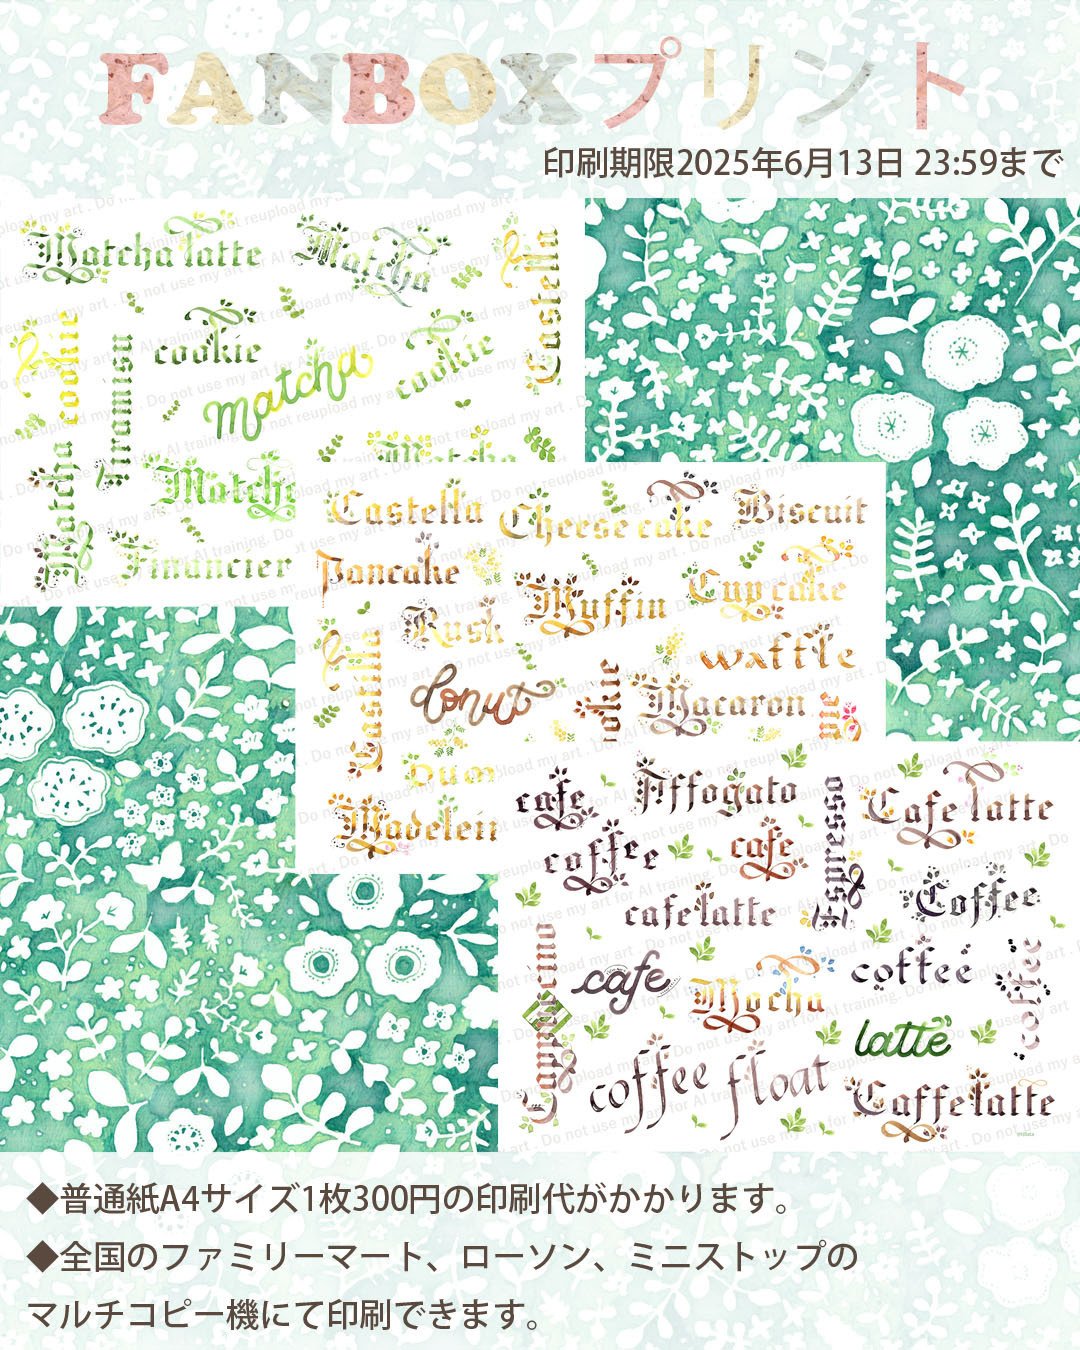 FANBOXプリント
印刷期限2025年6月13日 23:59まで
Matcha latte
Matcha
Castella
cookie
Tiramisu
cookie
matcha
cookie
Matcha
Matcha
Matcha
Financier
Castella
Cheese cake
Biscuit
Pancake
Muffin
Cup cake
Rusk
Castella
waffle
donut
okie
Macaron
Madelein
cafe
Affogato
Espresso
Cafe latte
coffee
cafe
cafe latte
Coffee
Cappuccino
cafe
Mocha
coffee
coffee
latte
coffee float
Caffe latte
Do not use my art for AI training. Do not reupload my art .
◆普通紙A4サイズ1枚300円の印刷代がかかります。
◆全国のファミリーマート、ローソン、ミニストップの
マルチコピー機にて印刷できます。